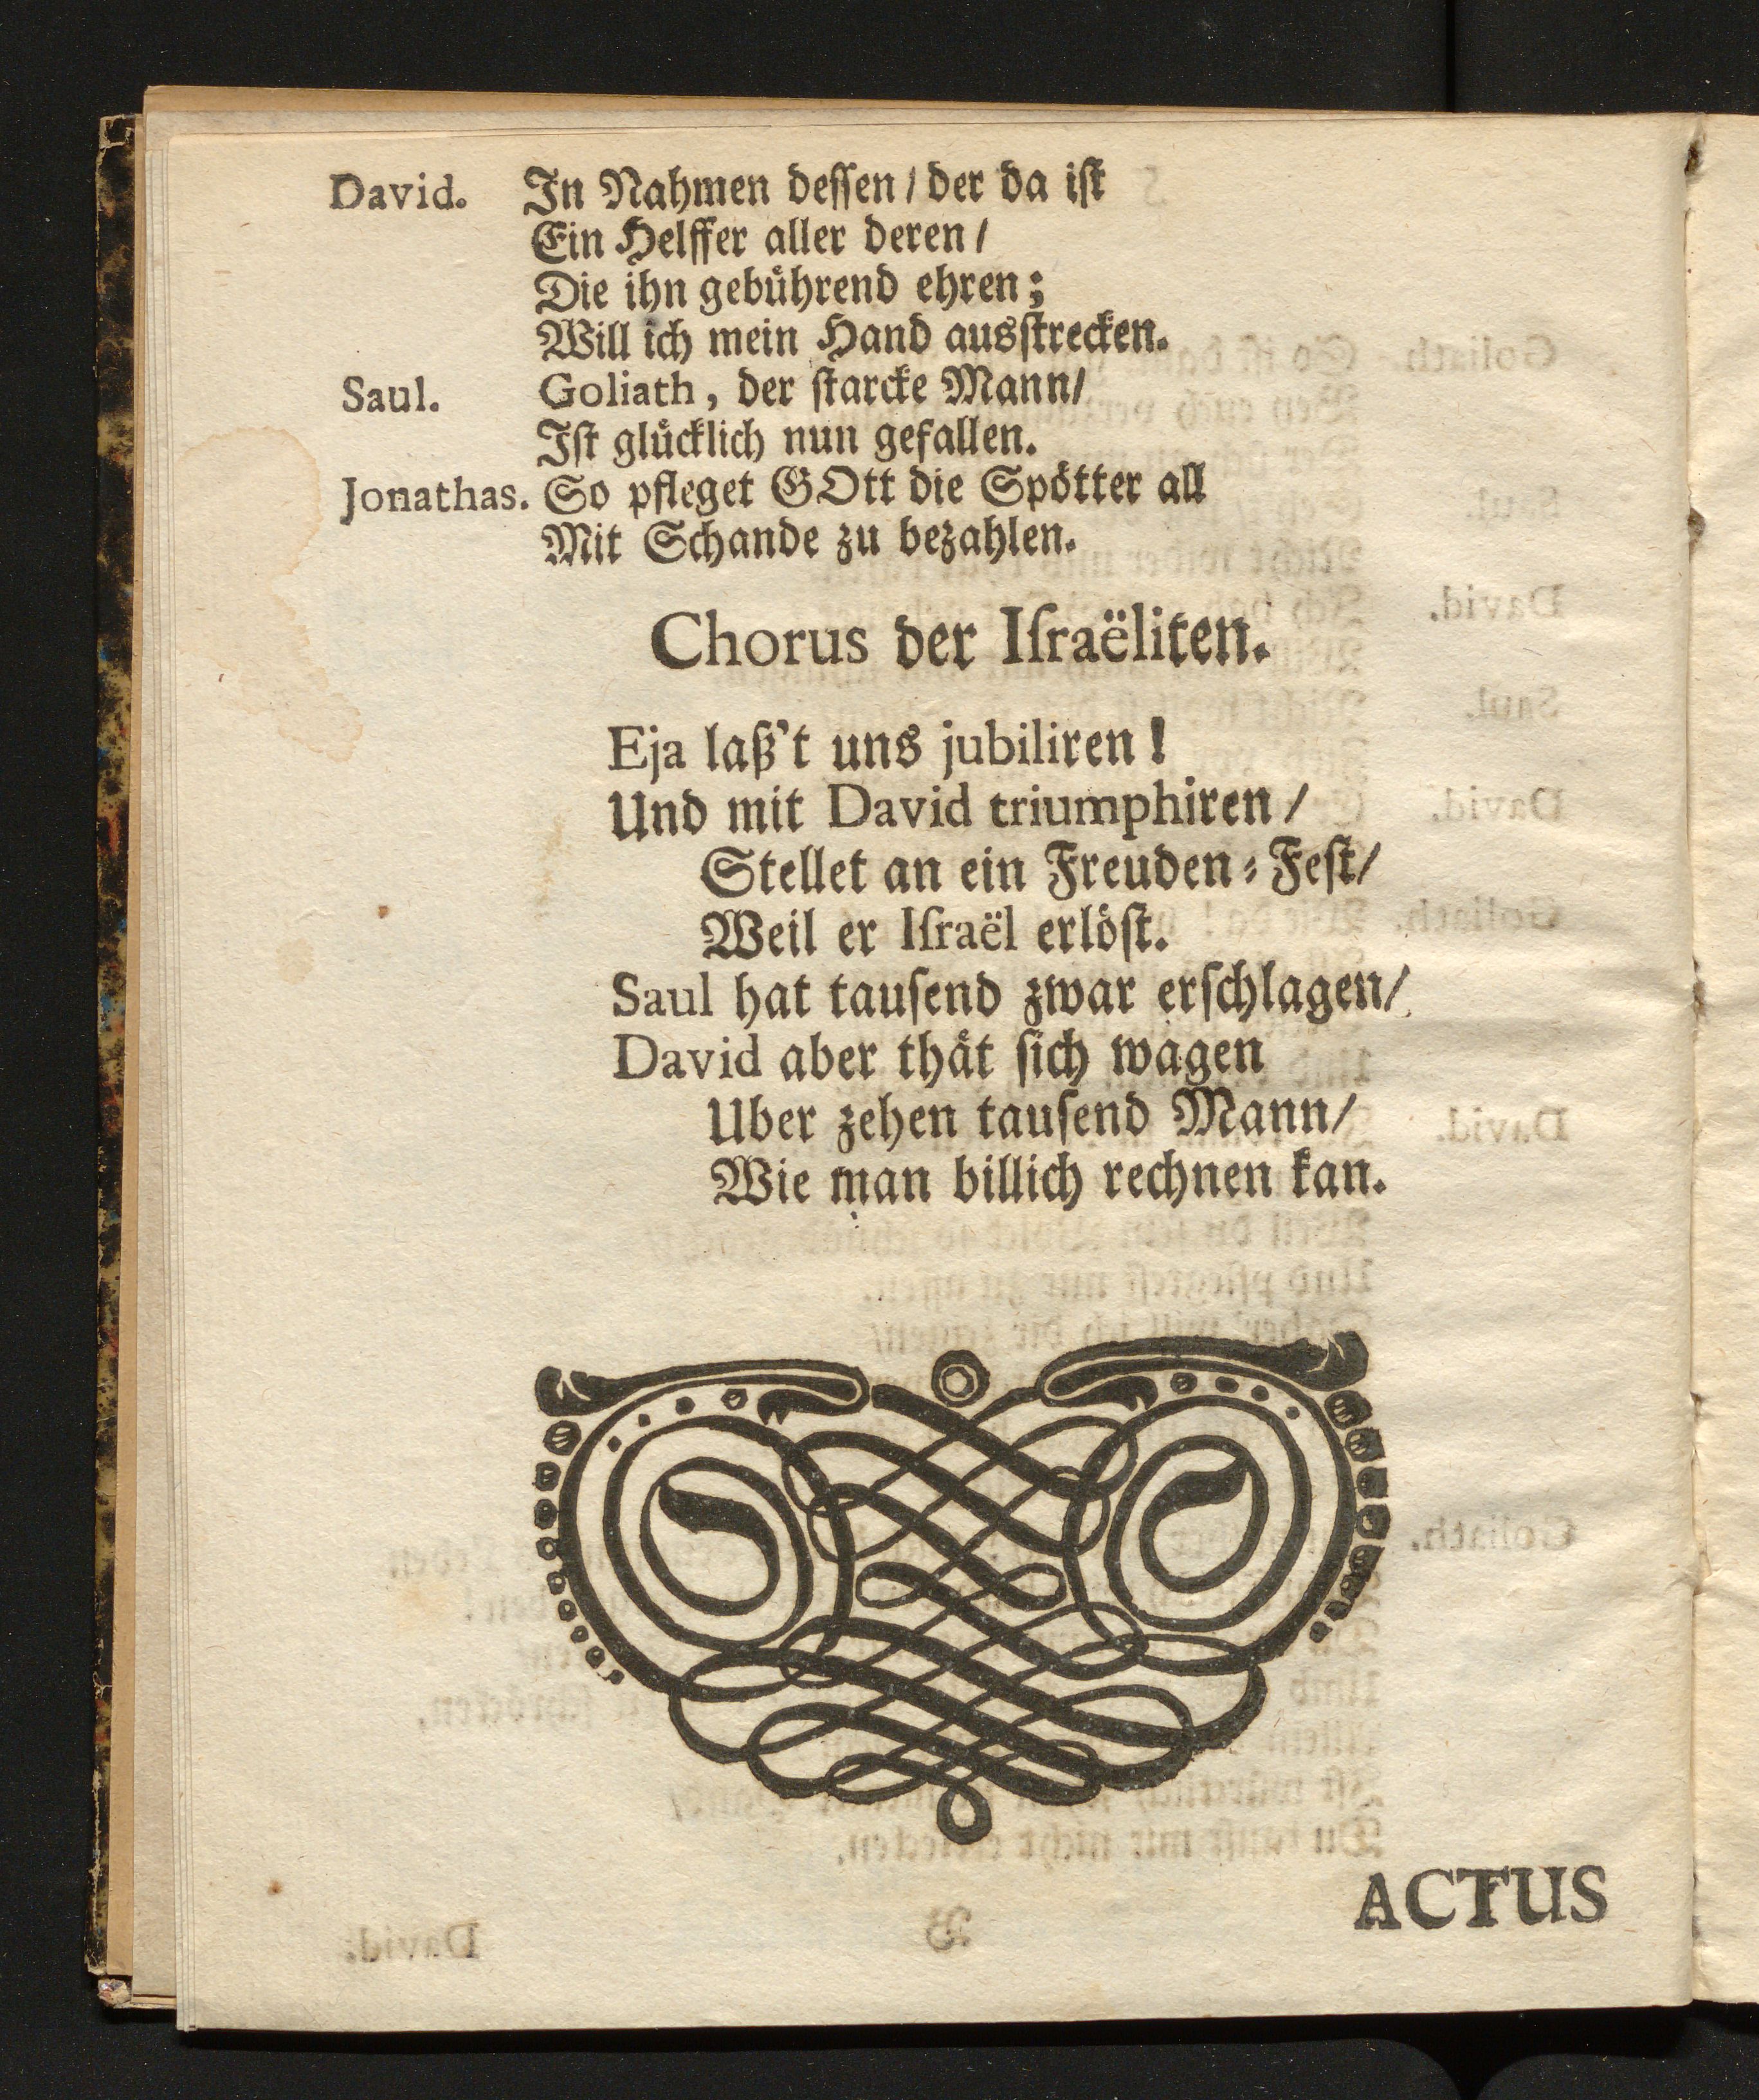 David. In Nahmen deſſen / der da iſt
Ein Helffer aller deren /
Die ihn gebuͤhrend ehren;
Will ich mein Hand ausſtrecken.
Saul. Goliath, der ſtarcke Mann /
Iſt gluͤcklich nun gefallen.
Jonathas. So pfleget GOtt die Spoͤtter all
Mit Schande zu bezahlen.
Chorus der Iſraëliten.
Eja laß't uns jubiliren!
Und mit David triumphiren /
Stellet an ein Freuden-Feſt /
Weil er Iſraël erloͤſt.
Saul hat tauſend zwar erſchlagen /
David aber thaͤt ſich wagen
Uber zehen tauſend Mann /
Wie man billich rechnen kan.
ACTUS